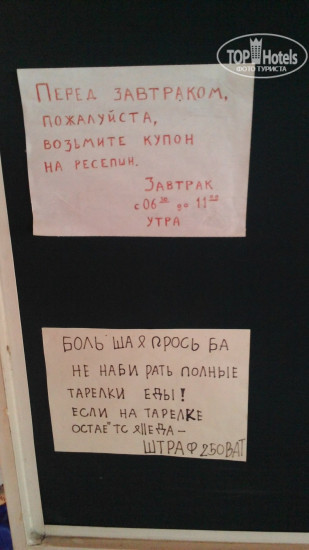 TOP Hotels
ФОТО ТУРИСТА
ПЕРЕД ЗАВТРАКОМ,
ПОЖАЛУЙСТА,
ВОЗЬМИТЕ КУПОН
НА РЕСЕПШН.
ЗАВТРАК
С 06 30 ДО 11 00
УТРА
БОЛЬ ША Я ПРОСЬ БА
НЕ НАБИ РАТЬ ПОЛНЫЕ
ТАРЕЛКИ ЕДЫ!
ЕСЛИ НА ТАРЕЛКЕ
ОСТАЕ"ТС Я ЕДА-
ШТРАФ 250ВАТ